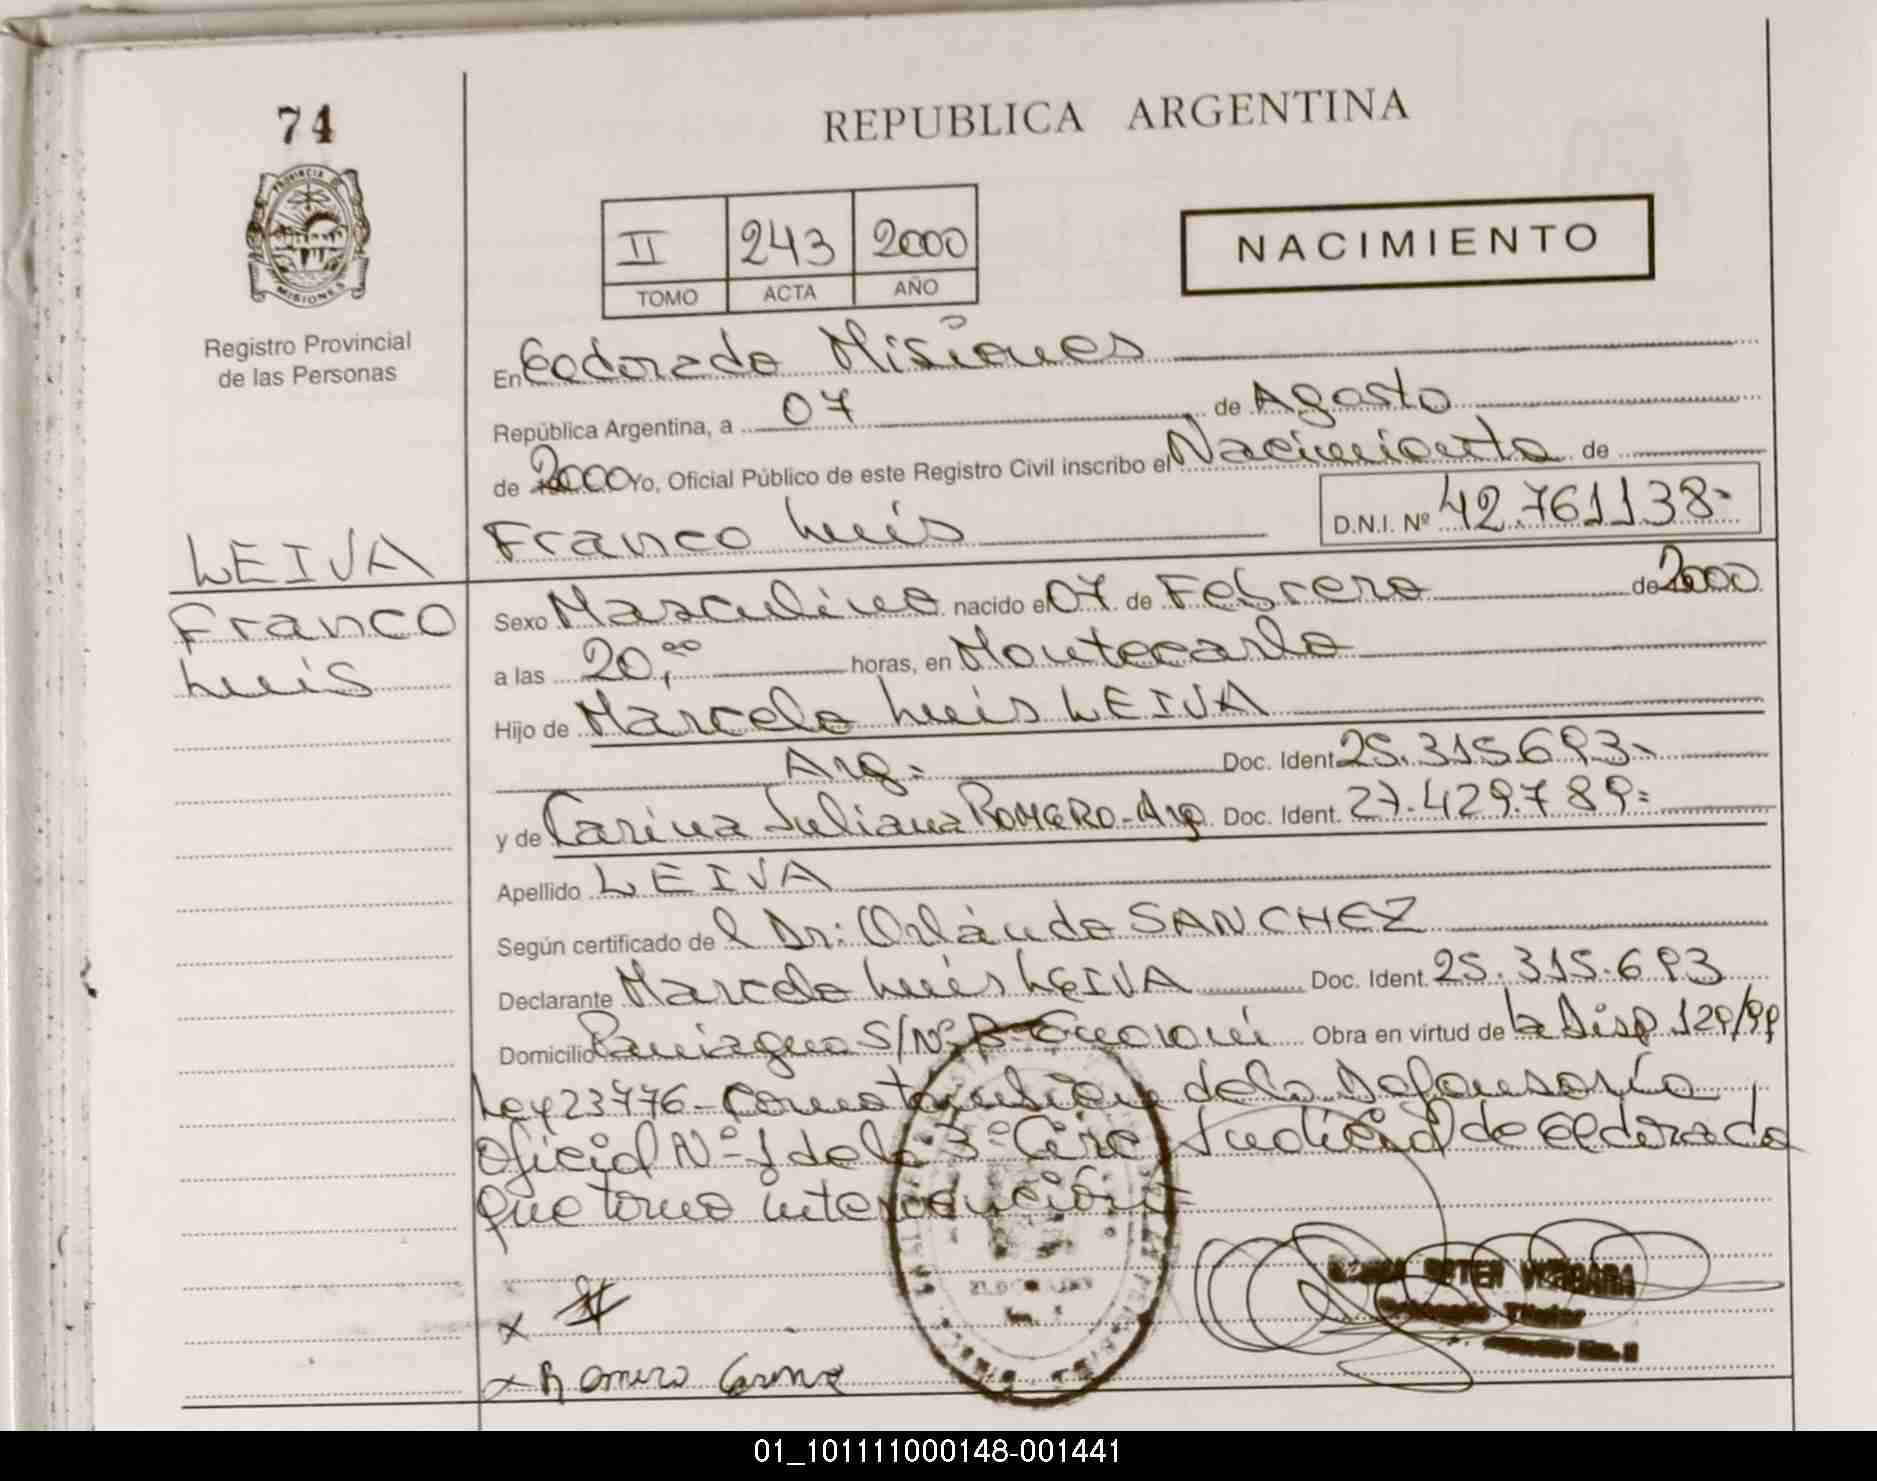 74
REPUBLICA ARGENTINA
PROVINCIA DE
MISIONES
II 243 2000
TOMO ACTA AÑO
NACIMIENTO
Registro Provincial
de las Personas
En Eldorado Misiones
República Argentina, a 07 de Agosto
de 2000 Yo, Oficial Público de este Registro Civil inscribo el Nacimiento de
Franco Luis D.N.I. Nº 42.761138-
LEIVA
Franco
Luis
Sexo Masculino nacido el 07 de Febrero de 2000
a las 20,00 horas, en Montecarlo
Hijo de Marcelo Luis LEIVA
Arg.- Doc. Ident. 25.315.693-
y de Carina Juliana ROMERO-Arg. Doc. Ident. 27.429.789=
Apellido LEIVA
Según certificado del Dr: Orlando SANCHEZ
Declarante Marcelo Luis LEIVA Doc. Ident. 25.315.693
Domicilio Paniagua S/Nº B- Guaraní Obra en virtud de la Disp 129/99
Ley 23776- de la Defensoría
Oficial Nº 1 de la 3º Circ Judicial de Eldorado
que tomo intervención=
x
x Romero Carina
VERGARA
Titular
01_101111000148-001441